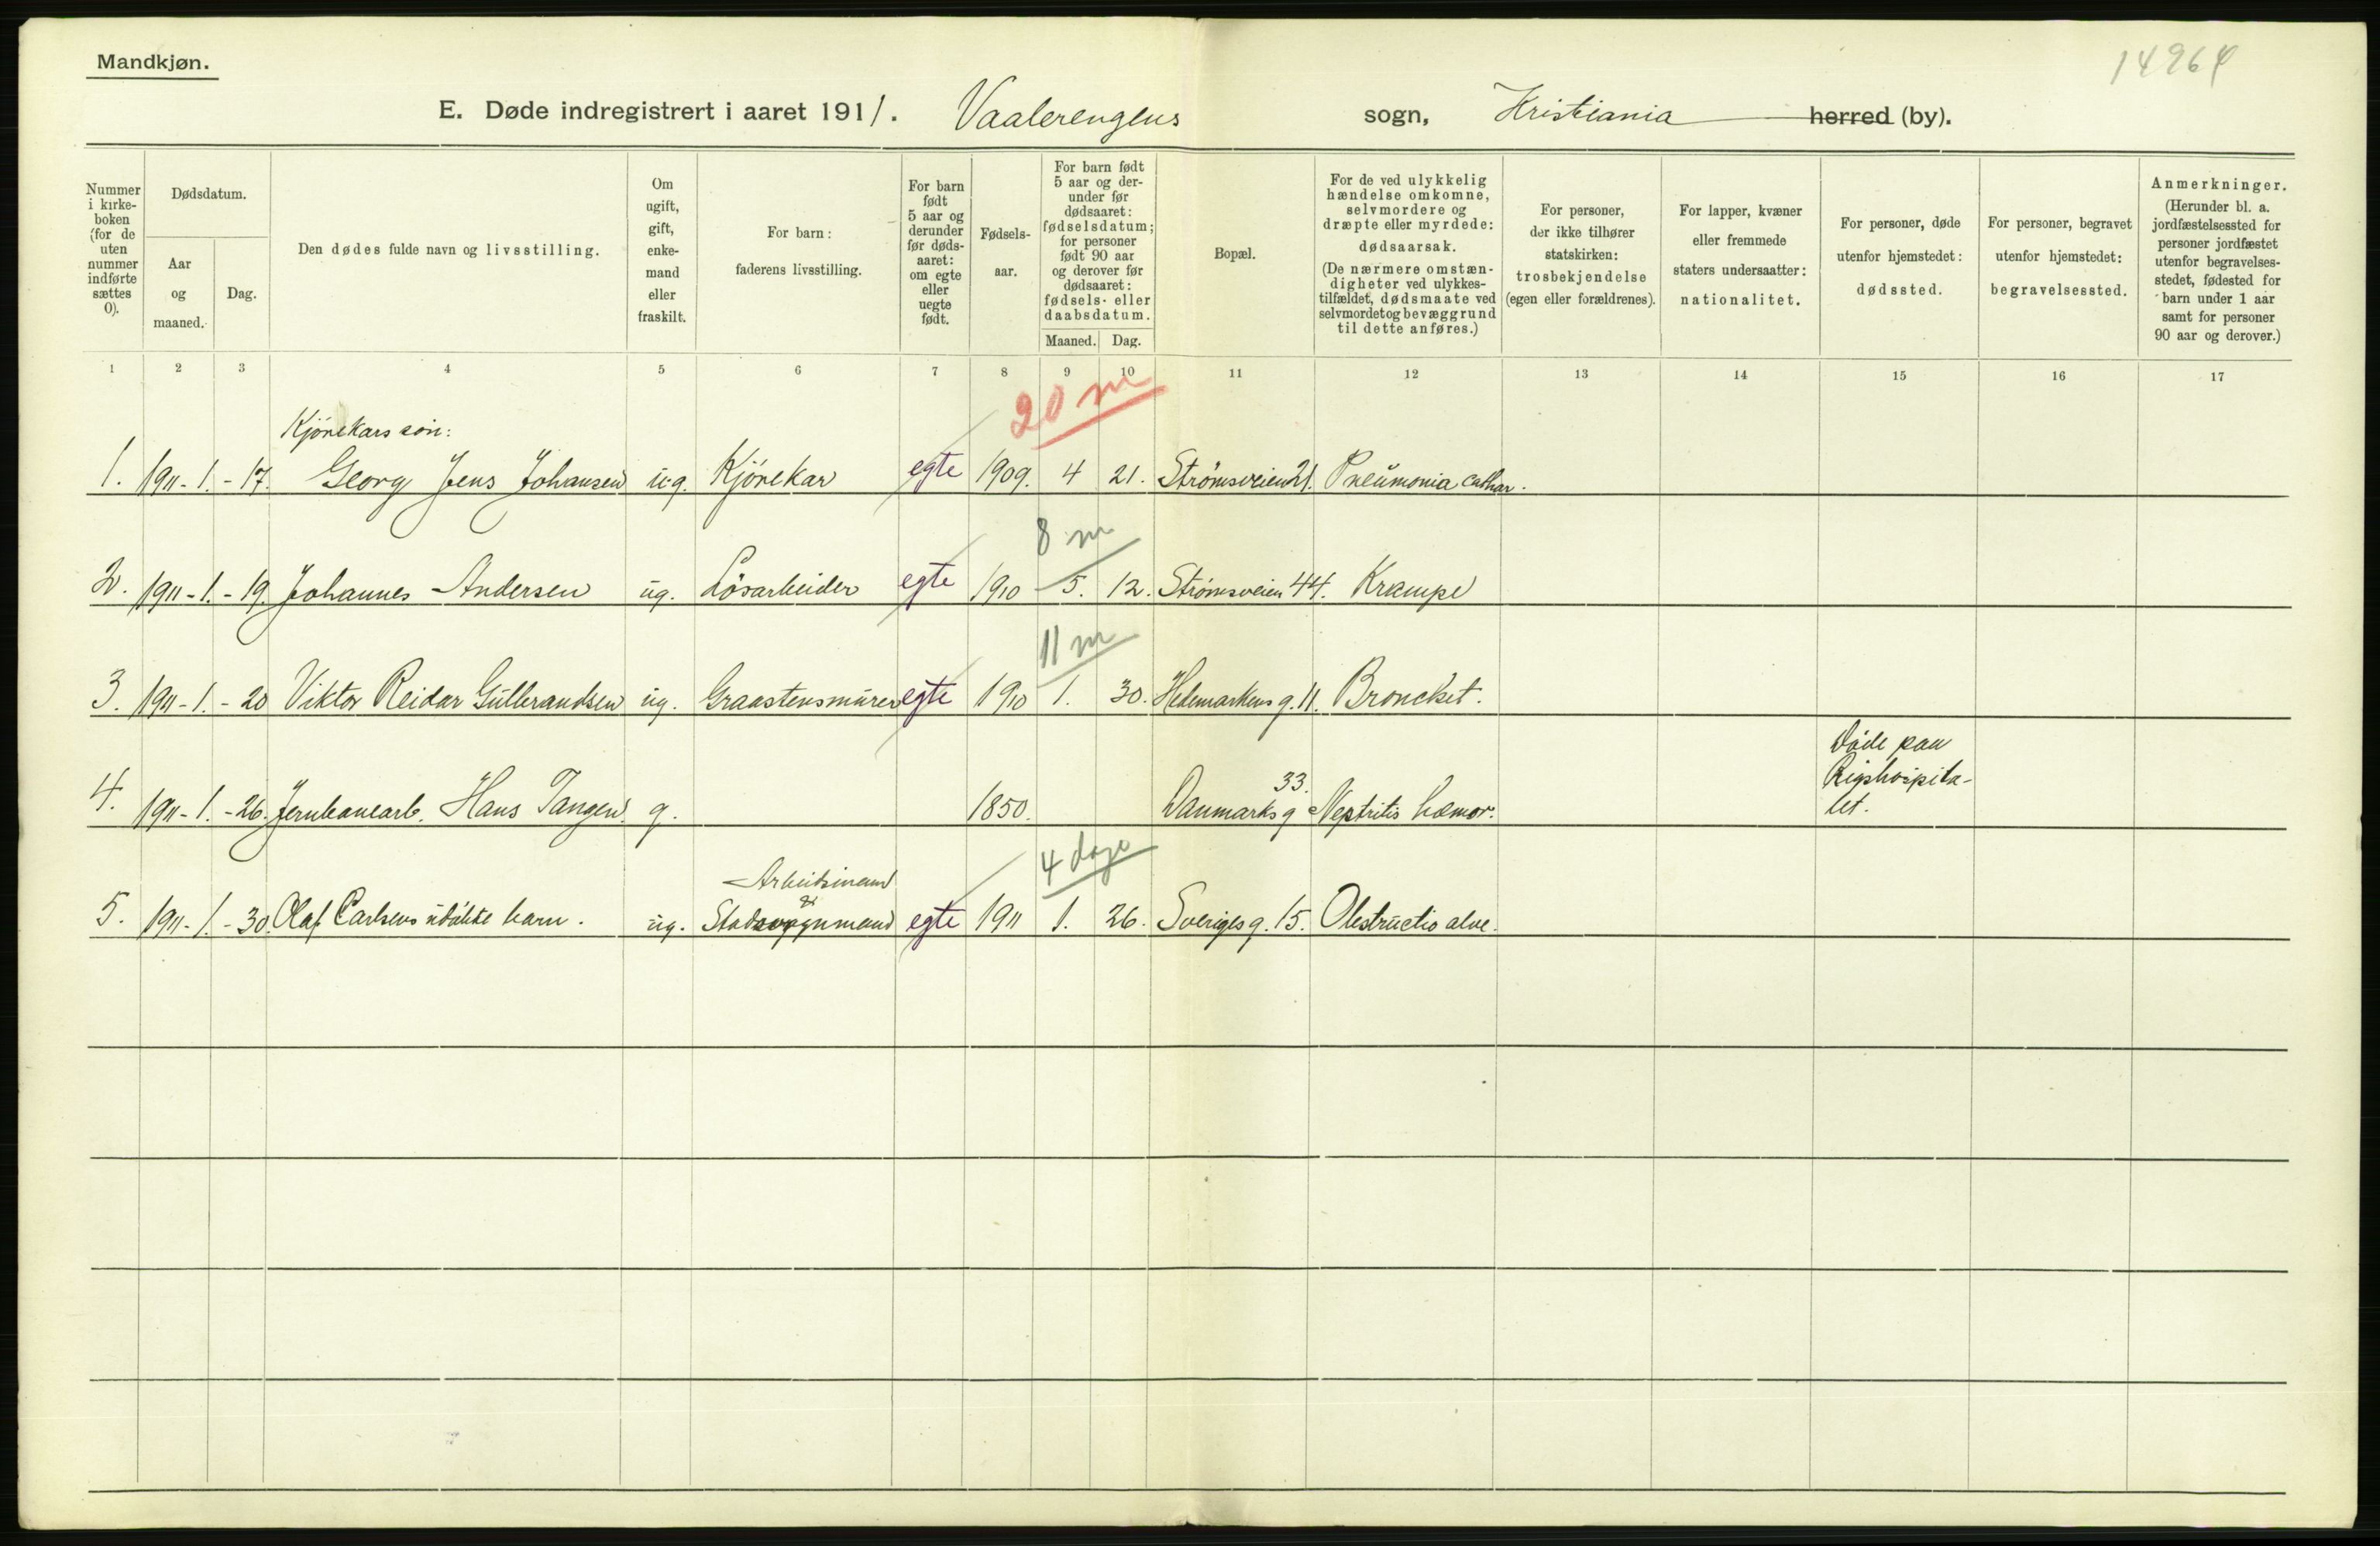 Mandkjøn.
14964
E. Døde indregistrert i aaret 1911. Vaalerengens sogn, Kristiania herred (by).
Nummer i kirke-boken (for de uten nummer indførte sættes 0).
Dødsdatum.
Aar og maaned.
Dag.
Den dødes fulde navn og livsstilling.
Om ugift, gift, enke-mand eller fraskilt.
For barn: faderens livsstilling.
For barn født 5 aar og derunder før døds-aaret: om egte eller uegte født.
Fødsels-aar.
For barn født 5 aar og der-under før dødsaaret: fødselsdatum; for personer født 90 aar og derover før dødsaaret: fødsels- eller daabsdatum.
Maaned. Dag.
Bopæl.
For de ved ulykkelig hændelse omkomne, selvmordere og dræpte eller myrdede: dødsaarsak. (De nærmere omstæn-digheter ved ulykkes-tilfældet, dødsmaate ved selvmordet og bevæggrund til dette anføres.)
For personer, der ikke tilhører statskirken: trosbekjendelse (egen eller forældrenes).
For lapper, kvæner eller fremmede staters undersaatter: nationalitet.
For personer, døde utenfor hjemstedet: dødssted.
For personer, begravet utenfor hjemstedet: begravelsessted.
Anmerkninger. (Herunder bl. a. jordfæstelsessted for personer jordfæstet utenfor begravelses-stedet, fødested for barn under 1 aar samt for personer 90 aar og derover.)
1 2 3 4 5 6 7 8 9 10 11 12 13 14 15 16 17
20 m
Kjörekars sön:
1. 1911-1.-17. Georg Jens Johansen ug. Kjörekar egte 1909. 4 21. Strömsveien 21. Pneumonia cathar.
8 m
2. 1911-1.-19. Johannes Andersen ug. Lösarbeider egte 1910 5. 12. Strömsveien 44. Krampe
11 m
3. 1911-1.-20 Viktor Reidar Gulbrandsen ug. Graastensmurer egte 1910 1. 30. Hedemarkens g. 11. Bronckit.
Döde paa
33. Rigshospita-
4. 1911-1.-26. Jernbanearb. Hans Tangen g. 1850. Danmarks g Neptritis hæmor. let.
4 dage
Arbeidsmand
5. 1911-1.-30. Olaf Carlsens udöbte barn. ug. egte 1911 1. 26. Sveriges g. 15. Obstructio alve.